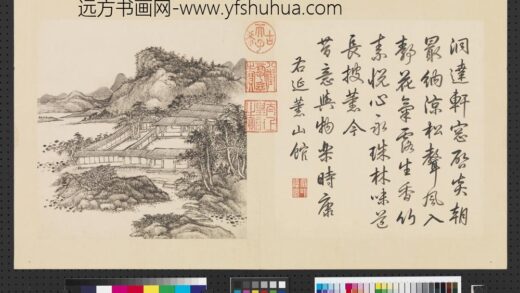 远方书画网-www.yfshuhua.com
洞達軒窓啓炎朝
最納涼松聲風入
靜花氣露生香竹
素悦心永珠林味道
長披薰今
昔意與物樂時康
右延薰山館